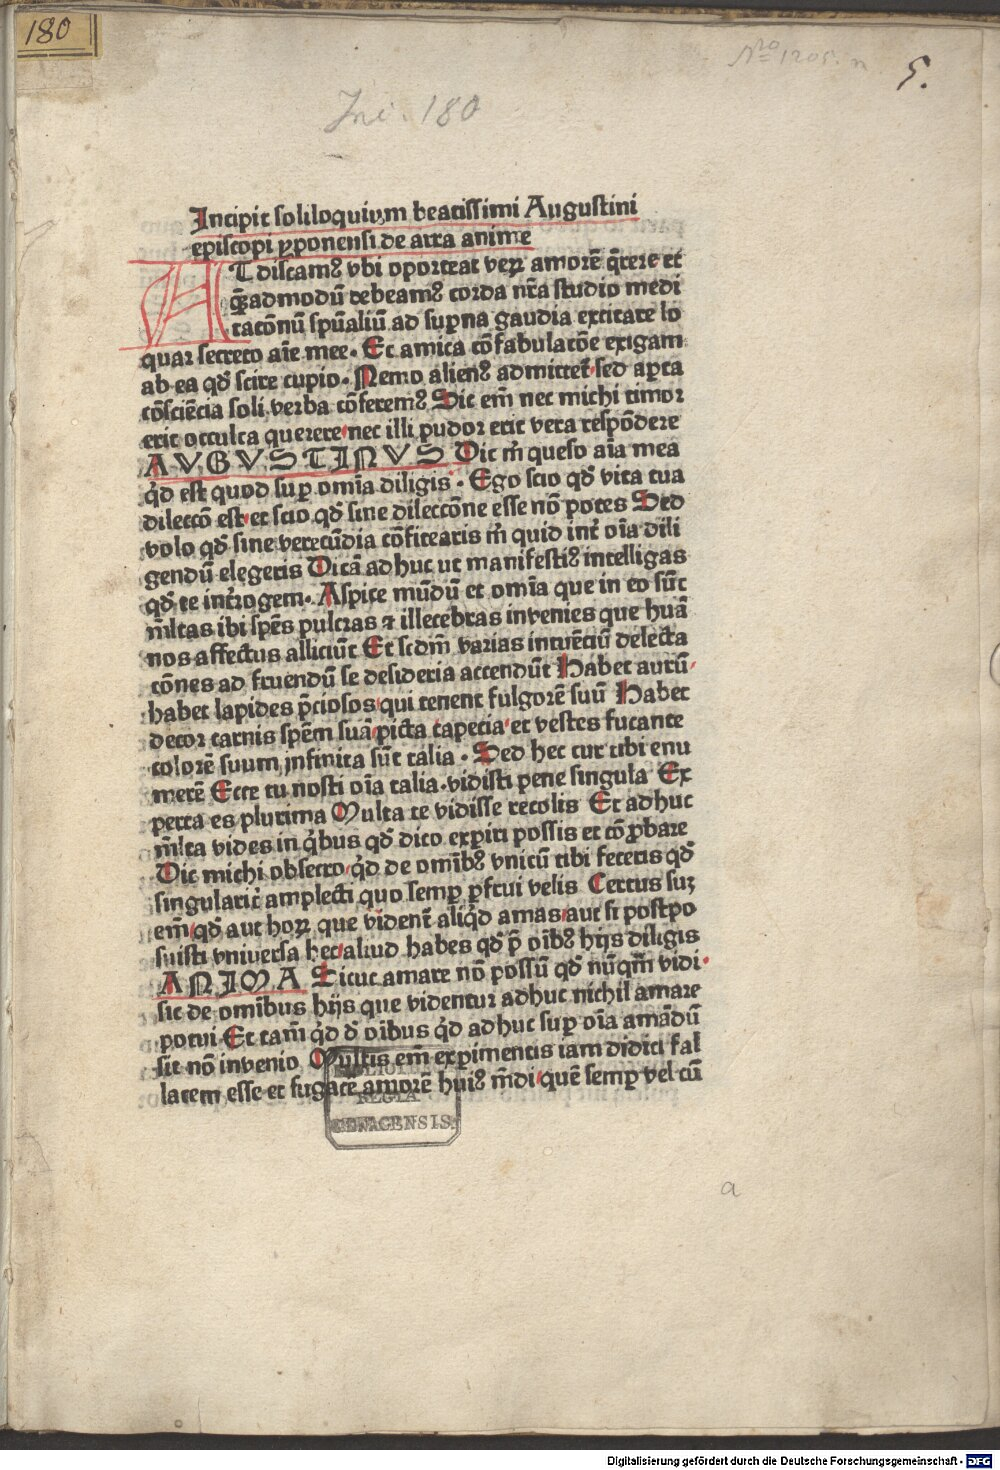 180
Nro 1205. n
5.
Inc. 180
Incipit soliloquium beatissimi Augustini
episcopi yponensi de arra anime
AT discamꝰ vbi oporteat veꝝ amorē q̄rere et
q̄ēadmodū debeamꝰ corda nr̄a studio medi
tacōnū spūaliū ad suꝑna gaudia excitare lo
quar secreto aīe mee. Et amica cōfabulacōe exigam
ab ea qd̄ scire cupio. Nemo alienꝰ admittet᷑ sed aꝑta
cōsciēcia soli verba cōferemꝰ Sic em̄ nec michi timor
erit occulta querere nec illi pudor erit vera respōdere
AVGVSTINVS Dic m̄ queso aīa mea
qͥd est quod suꝑ omīa diligis. Ego scio qd̄ vita tua
dileccō est et scio qd̄ sine dileccōne esse nō potes Sed
volo qd̄ sine verecūdia cōfitearis m̄ quid int̄ oīa dili
gendū elegeris Dicā adhuc ut manifestiꝰ intelligas
qd̄ te int̄rogem. Aspice mūdū et omīa que in eo sūt
m̄ltas ibi spēs pulcras ⁊ illecebras invenies que huā
nos affectus alliciūt Et scdm̄ varias intuēciū delecta
cōnes ad fruendū se desideria accendūt Habet aurū
habet lapides p̄ciosos qui tenent fulgorē suū Habet
decor carnis spēm suā picta tapecia et vestes fucante
colorē suum infinita sūt talia. Sed hec cur tibi enu
merē Ecce tu nosti oīa talia. vidisti pene singula Ex
perta es plurima Multa te vidisse recolis Et adhuc
m̄lta vides in qͥbus qd̄ dico exꝑiri possis et cōprobare
Dic michi obsecro qͥd de omībꝰ vnicū tibi feceris qd̄
singularit̄ amplecti quo semꝑ ꝑfrui velis Certus suꝫ
em̄ qd̄ aut hoꝝ que vident᷑ aliqͥd amas aut si postpo
suisti vniversa hec aliud habes qd̄ p̄ oībꝰ hijs diligis
ANIMA Sicut amare nō possū qd̄ nūqm̄ vidi
sic de omībus hijs que videntur adhuc nichil amare
potui Et tam̄ qͥd d̄ oībus qͥd adhuc suꝑ oīa amādū
sit nō invenio Multis em̄ exꝑimentis iam didici fal
lacem esse et fugacē amorē huiꝰ mūdi quē semꝑ vel cū
REGIA
a
Digitalisierung gefördert durch die Deutsche Forschungsgemeinschaft - DFG